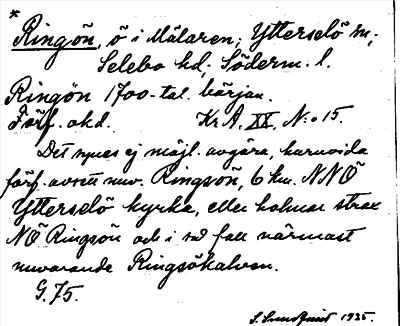 *
Ringön, ö i Mälaren; Ytterselö sn;
Selebo hd, Söderm. l.
Ringön 1700-tal. början.
Förf. okd. Kr. A. XX, N:o 15.
Det synes ej möjl. avgöra, huruvida
förf. avsett nuv. Ringsön, 6 km. NNÖ
Ytterselö kyrka, eller holmar strax
NÖ Ringsön och i så fall närmast
nuvarande Ringsökalven.
G. 75.
1935.